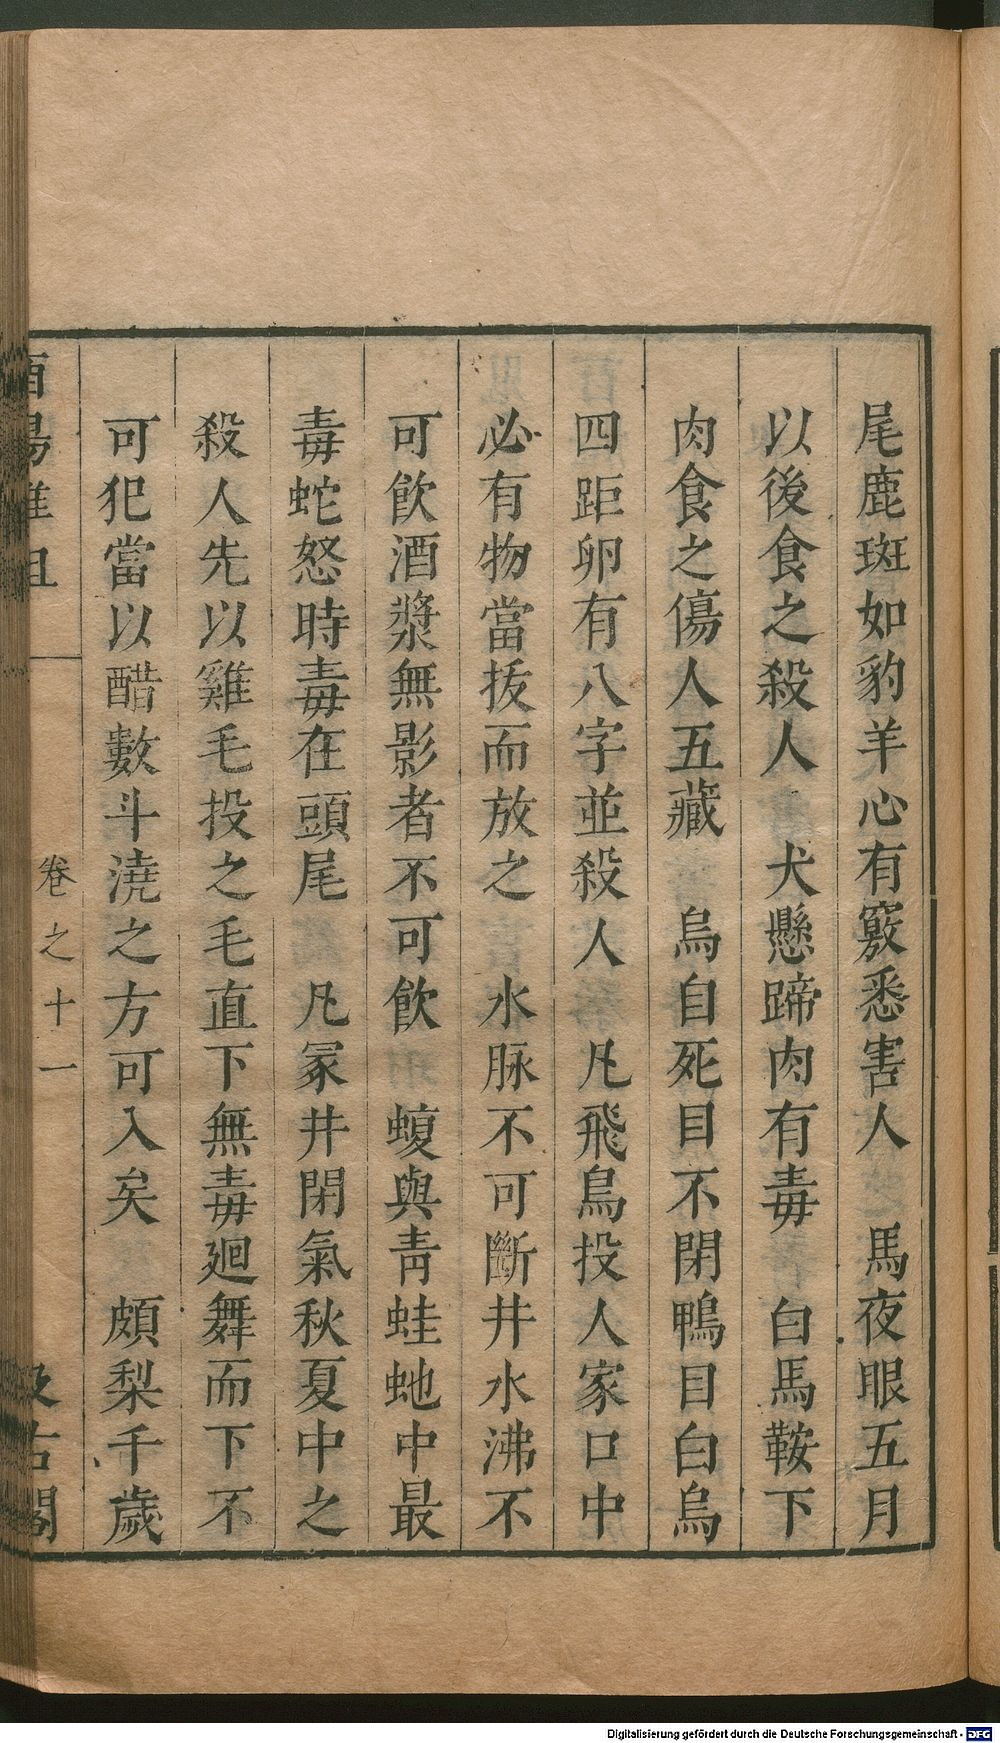 尾鹿斑如豹羊心有竅悉害人　馬夜眼五月
以後食之殺人　犬懸蹄肉有毒　白馬鞍下
肉食之傷人五藏　烏自死目不閉鴨目白烏
四距卵有八字並殺人　凡飛鳥投人家口中
必有物當拔而放之　水脉不可斷井水沸不
可飲酒漿無影者不可飲　蝮與靑蛙虵中最
毒蛇怒時毒在頭尾　凡冢井閉氣秋夏中之
殺人先以雞毛投之毛直下無毒廻舞而下不
可犯當以醋數斗澆之方可入矣　頗梨千歲
酉陽雜俎　卷之十一　汲古閣
Digitalisierung gefördert durch die Deutsche Forschungsgemeinschaft - DFG